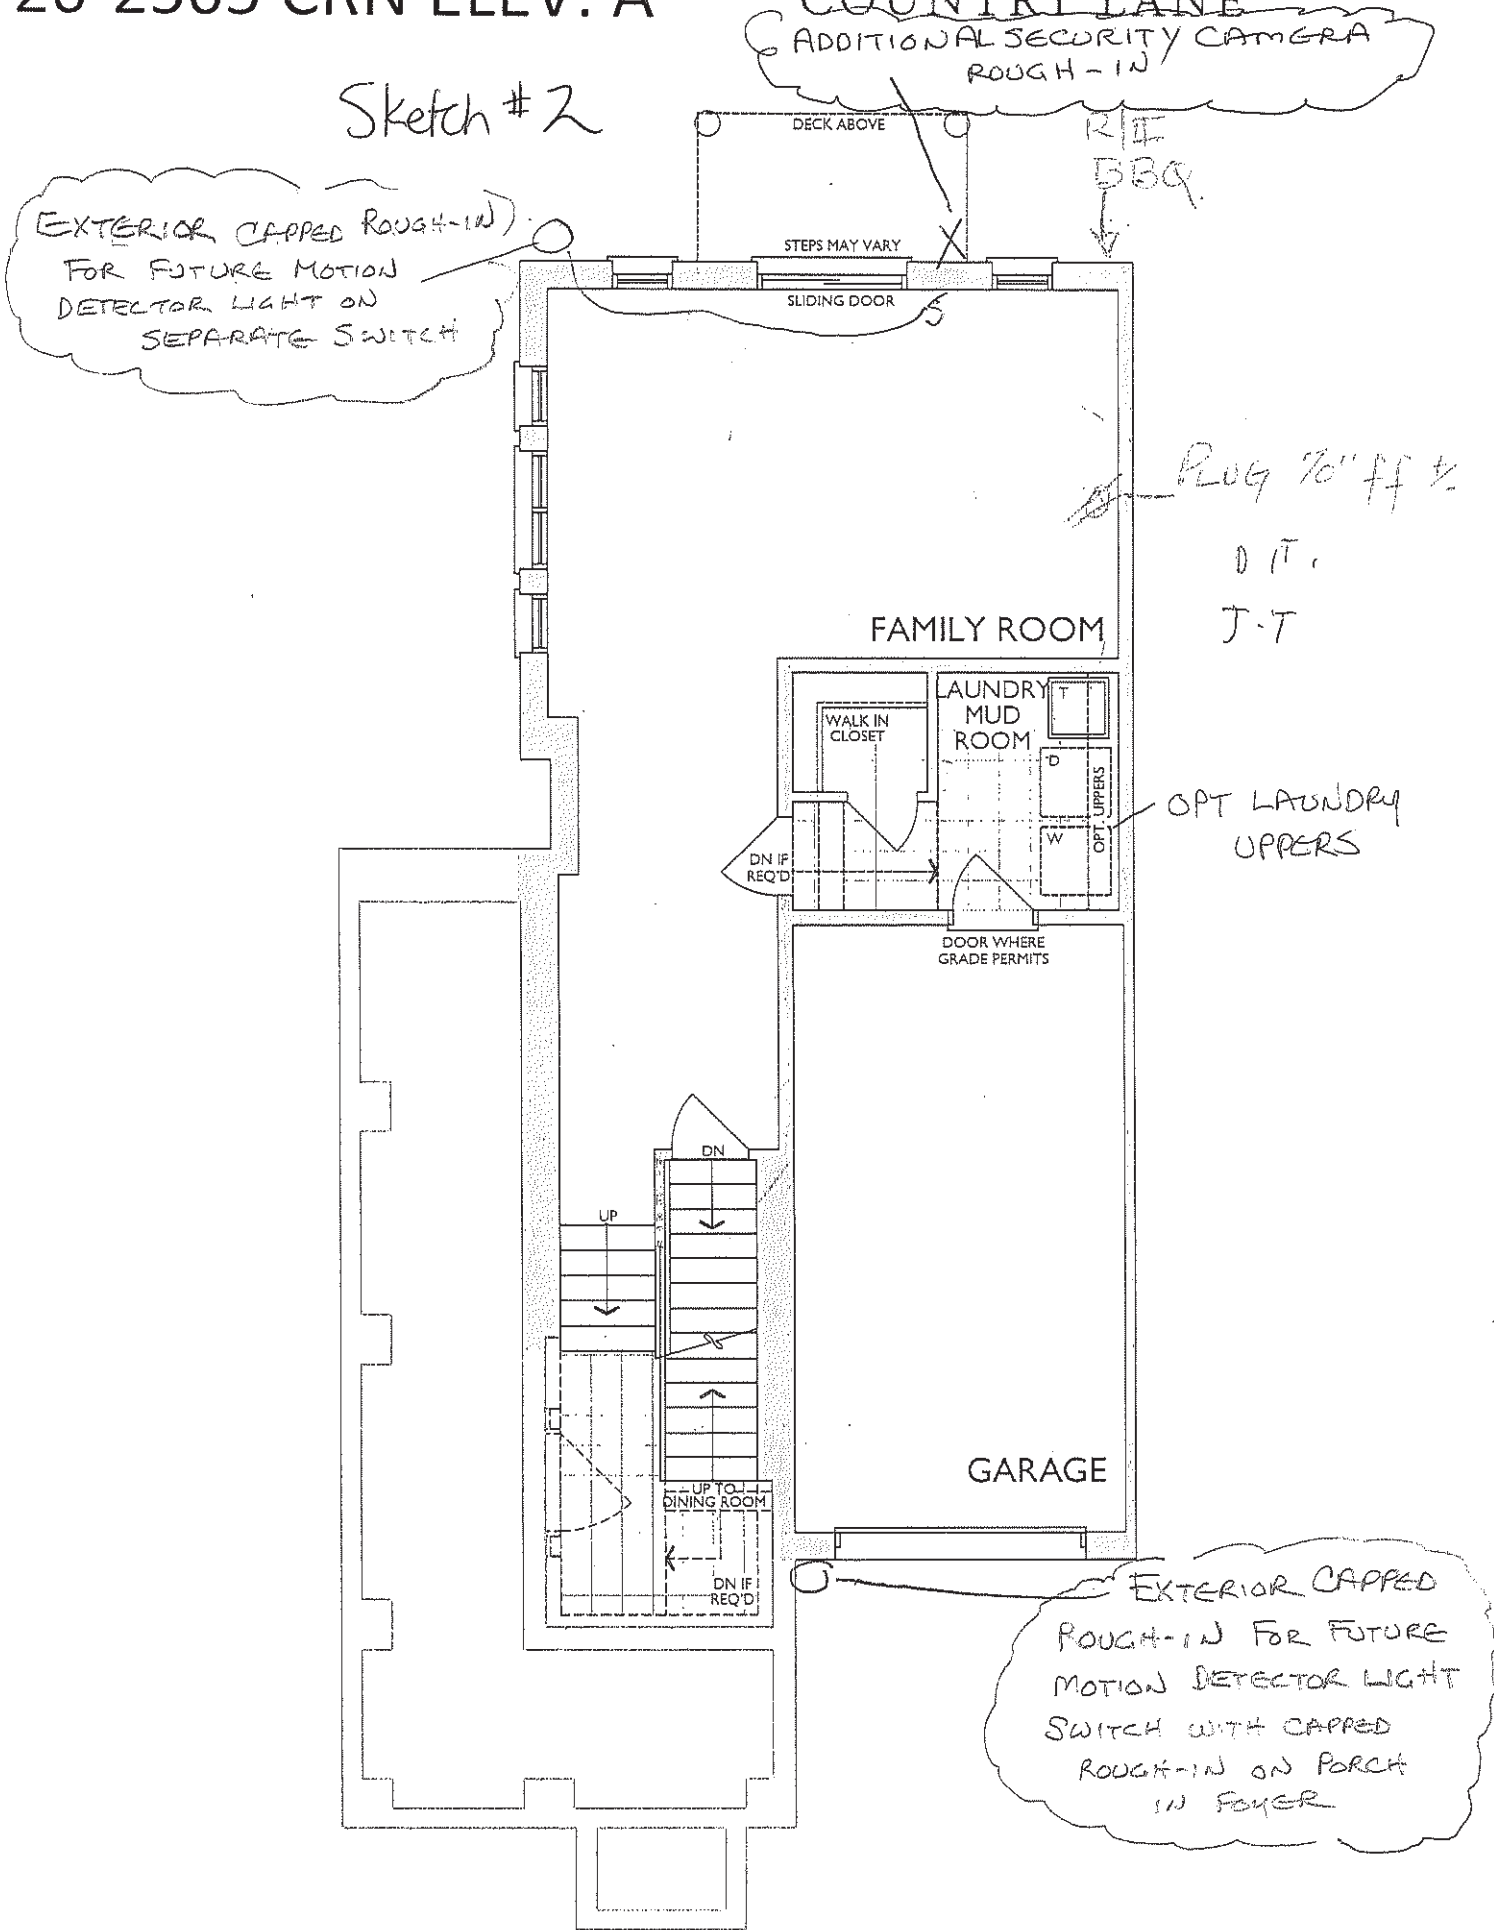 CRN ELEV. A
COUNTRY LANE
ADDITIONAL SECURITY CAMERA
ROUGH-IN
Sketch #2
DECK ABOVE
R/I
BBQ
EXTERIOR CAPPED ROUGH-IN
FOR FUTURE MOTION
DETECTOR LIGHT ON
SEPARATE SWITCH
STEPS MAY VARY
SLIDING DOOR
S
PLUG 70" ff
D.T.
J.T
FAMILY ROOM
LAUNDRY
MUD
ROOM
T
WALK IN
CLOSET
D
OPT. UPPERS
W
OPT LAUNDRY
UPPERS
DN IF
REQ'D
DOOR WHERE
GRADE PERMITS
DN
UP
GARAGE
UP TO
DINING ROOM
DN IF
REQ'D
EXTERIOR CAPPED
ROUGH-IN FOR FUTURE
MOTION DETECTOR LIGHT
SWITCH WITH CAPPED
ROUGH-IN ON PORCH
IN FOYER